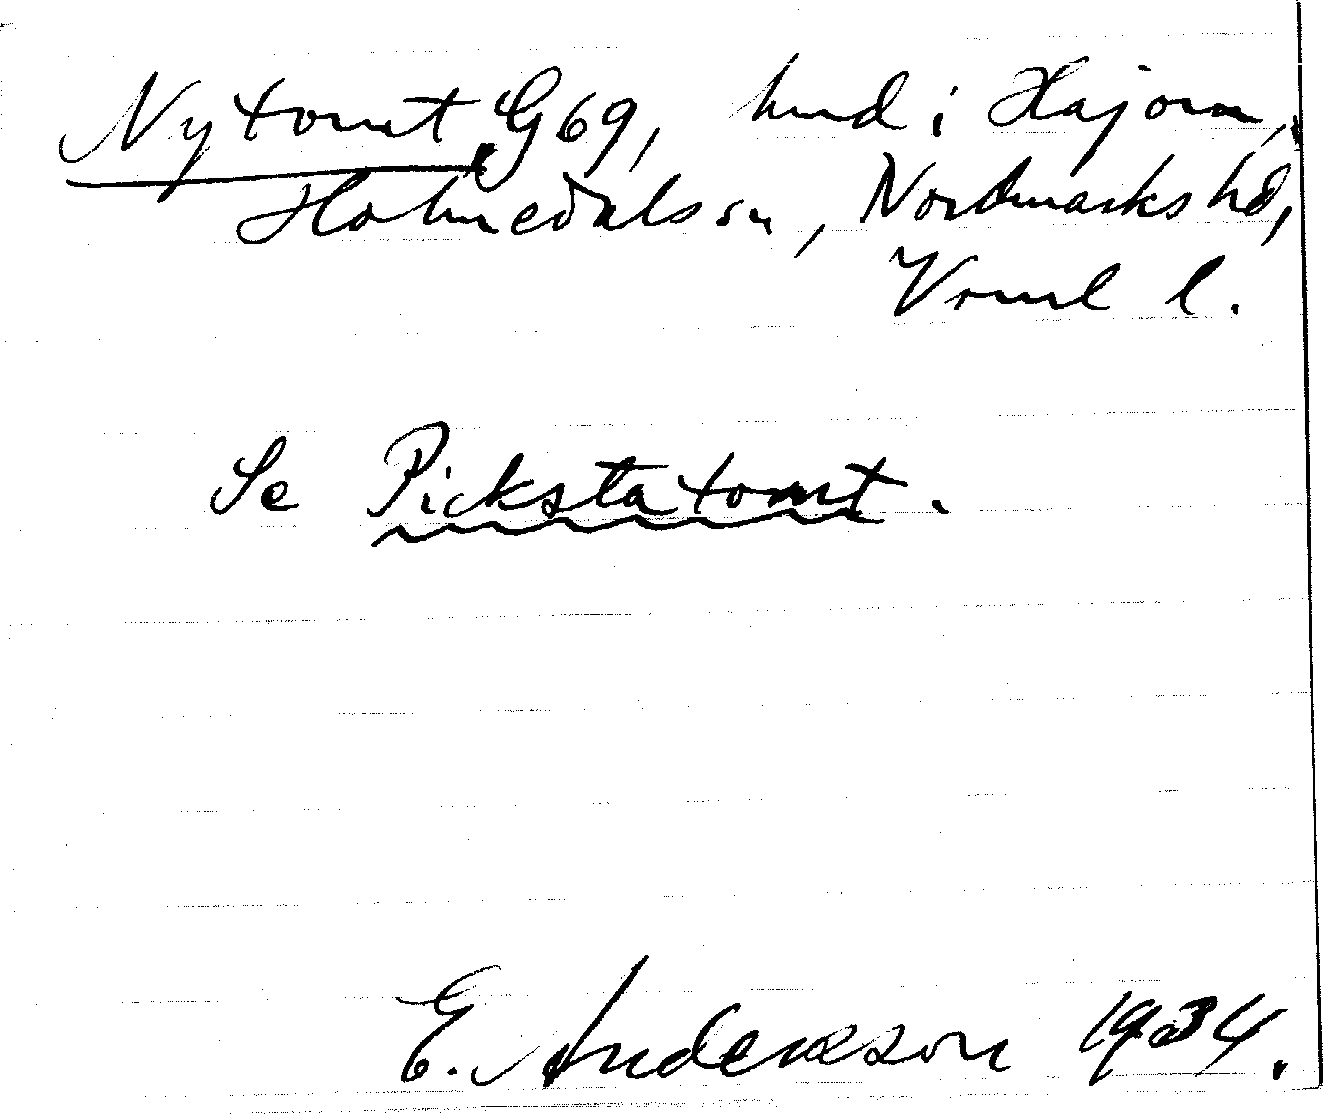 Nytomt, G69, hmd i Hajom,
Holmedals sn, Nordmarks hd,
Vrml l.
Se Pickstatomt.
E. Anderson 1934.